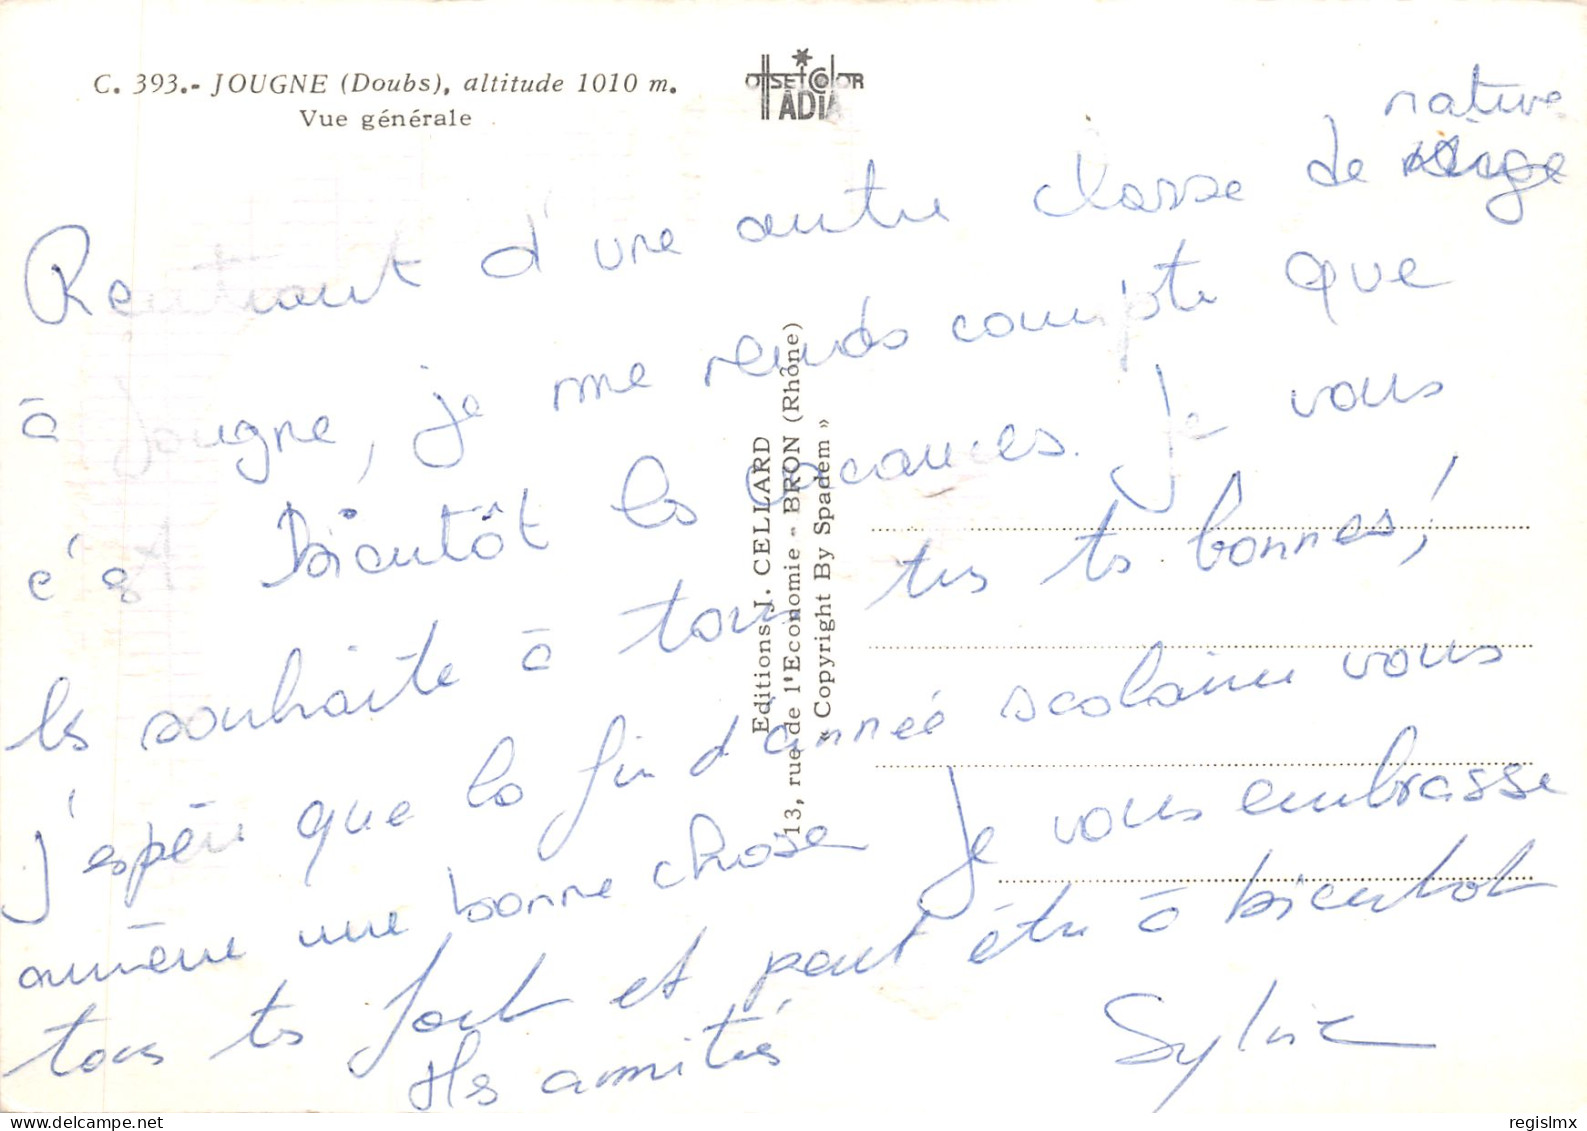 C. 393.- JOUGNE (Doubs), altitude 1010 m.
Vue générale
OFFSET COLOR
ADIA
nature
Rentrant d'une autre classe de neige
à Jougne, je me rends compte que
c'est Bientôt les vacances. Je vous
les souhaite à tous très ts bonnes!
J'espère que la fin d'année scolaire vous
amène une bonne chose Je vous embrasse
tous ts fort et peut être à bientôt
Mes amitiés
Sylvie
Editions J. CELLARD
13, rue de l'Economie - BRON (Rhône)
« Copyright By Spadem »
regislmx
www.delcampe.net